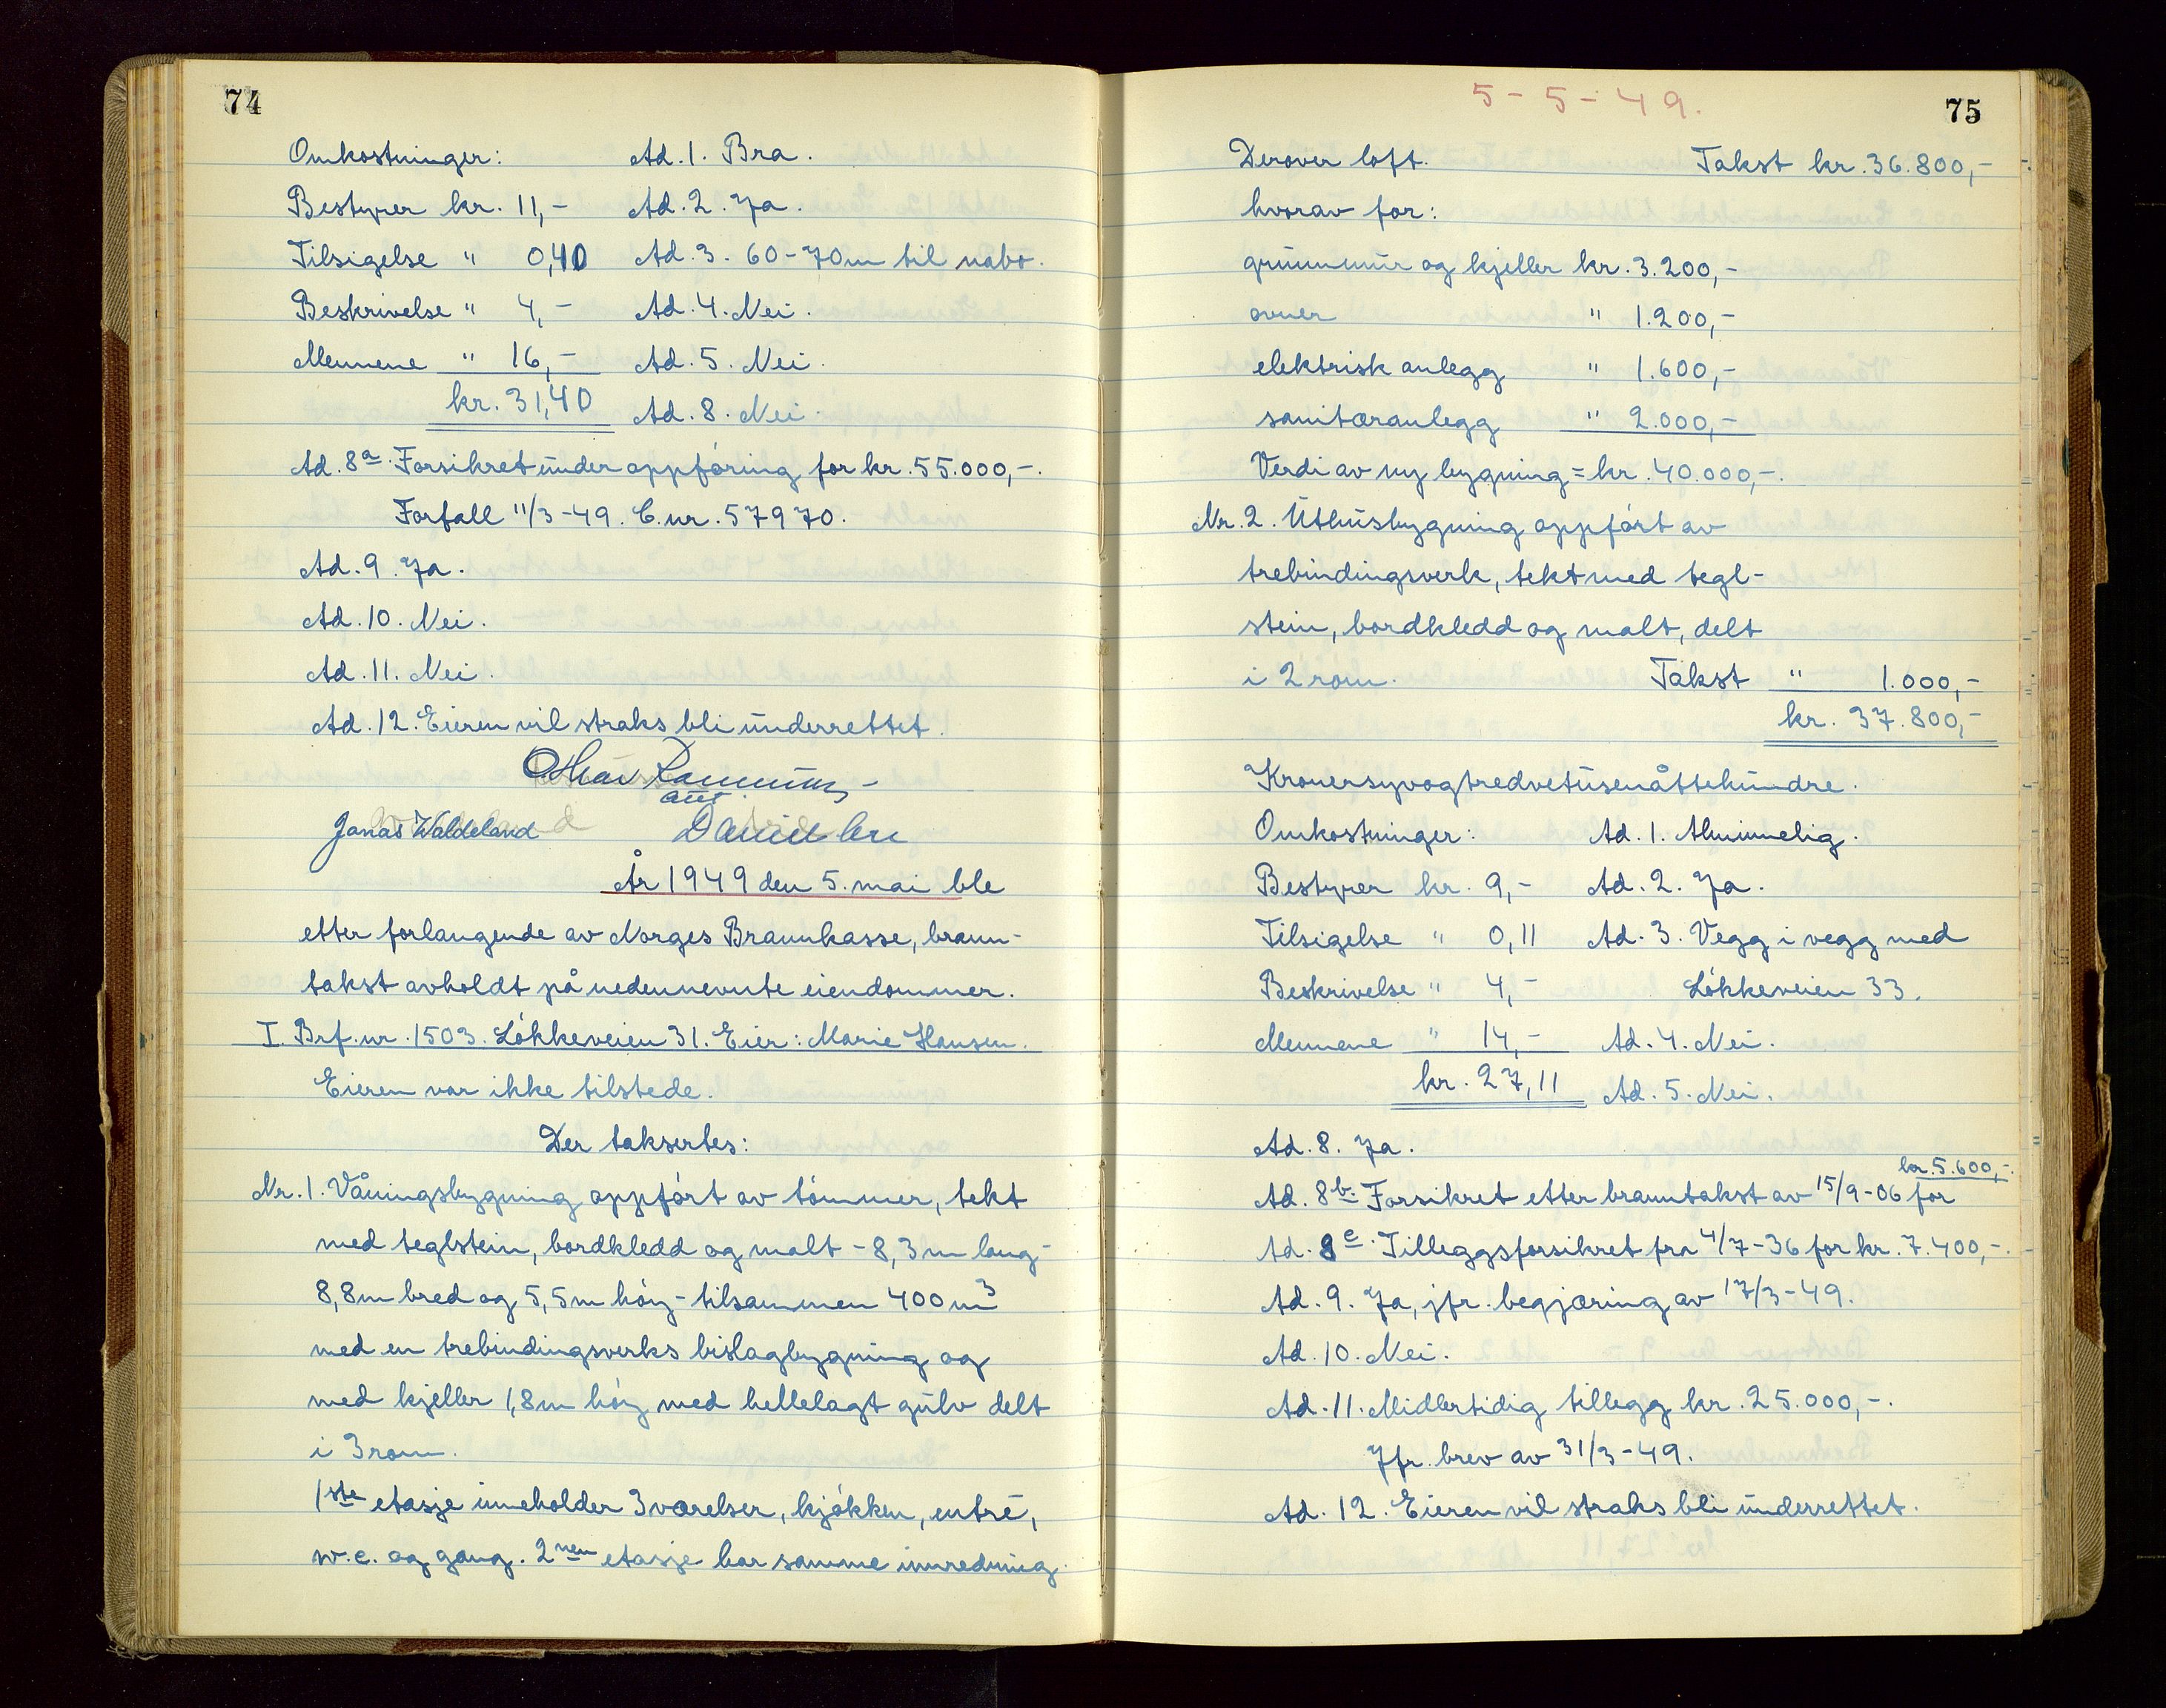 74
Omkostninger: Ad. 1. Bra.
Bestyrer kr. 11,- Ad. 2. Ja.
Tilsigelse " 0,40 Ad. 3. 60-70m til nabo.
Beskrivelse " 4,- Ad. 4. Nei.
Mennene " 16,- Ad. 5. Nei.
kr. 31,40 Ad. 8. Nei.
Ad. 8a. Forsikret under oppföring for kr. 55.000,-.
Forfall 11/3-49. C.nr. 57970.
Ad. 9. Ja.
Ad. 10. Nei.
Ad. 11. Nei.
Ad. 12. Eieren vil straks bli underrettet.
Jonas Waldeland
År 1949 den 5. mai ble
etter forlangende av Norges Brannkasse, brann-
takst avholdt på nedennevnte eiendommer.
I. Brf.nr. 1503. Lökkeveien 31. Eier: Marie Hansen.
Eieren var ikke tilstede.
Der taksertes:
Nr. 1. Våningsbygning oppfört av tömmer, tekt
med teglstein, bordkledd og malt - 8,3m lang -
8,8m bred og 5,5m höy - tilsammen 400 m3
med en trebindingsverks bislagbygning og
med kjeller 1,8m höy med hellelagt gulv delt
i 3 rom.
1ste etasje inneholder 3 værelser, kjökken, entré,
w.c. og gang. 2nen etasje har samme innredning.
5-5-49.
75
Derover loft. Takst kr. 36.800,-
hvorav for:
grunnmur og kjeller kr. 3.200,-
ovner " 1.200,-
elektrisk anlegg " 1.600,-
sanitæranlegg " 2.000,-
Verdi av ny bygning = kr. 40.000,-.
Nr. 2. Uthusbygning oppfört av
trebindingsverk, tekt med tegl-
stein, bordkledd og malt, delt
i 2 rom. Takst " 1.000,-
kr. 37.800,-
Kronersyvogtredvetusenåttehundre.
Omkostninger: Ad. 1. Alminnelig.
Bestyrer kr. 9,- Ad. 2. Ja.
Tilsigelse " 0,11 Ad. 3. Vegg i vegg med
Beskrivelse " 4,- Lökkeveien 33.
Mennene " 14,- Ad. 4. Nei.
kr. 27,11 Ad. 5. Nei.
Ad. 8. Ja.
kr. 5.600,-.
Ad. 8b. Forsikret etter branntakst av 15/9-06 for
Ad. 8c. Tilleggsforsikret fra 4/7-36 for kr. 7.400,-.
Ad. 9. Ja, jfr. begjæring av 17/3-49.
Ad. 10. Nei.
Ad. 11. Midlertidig tillegg kr. 25.000,-.
Jfr. brev av 31/3-49.
Ad. 12. Eieren vil straks bli underrettet.